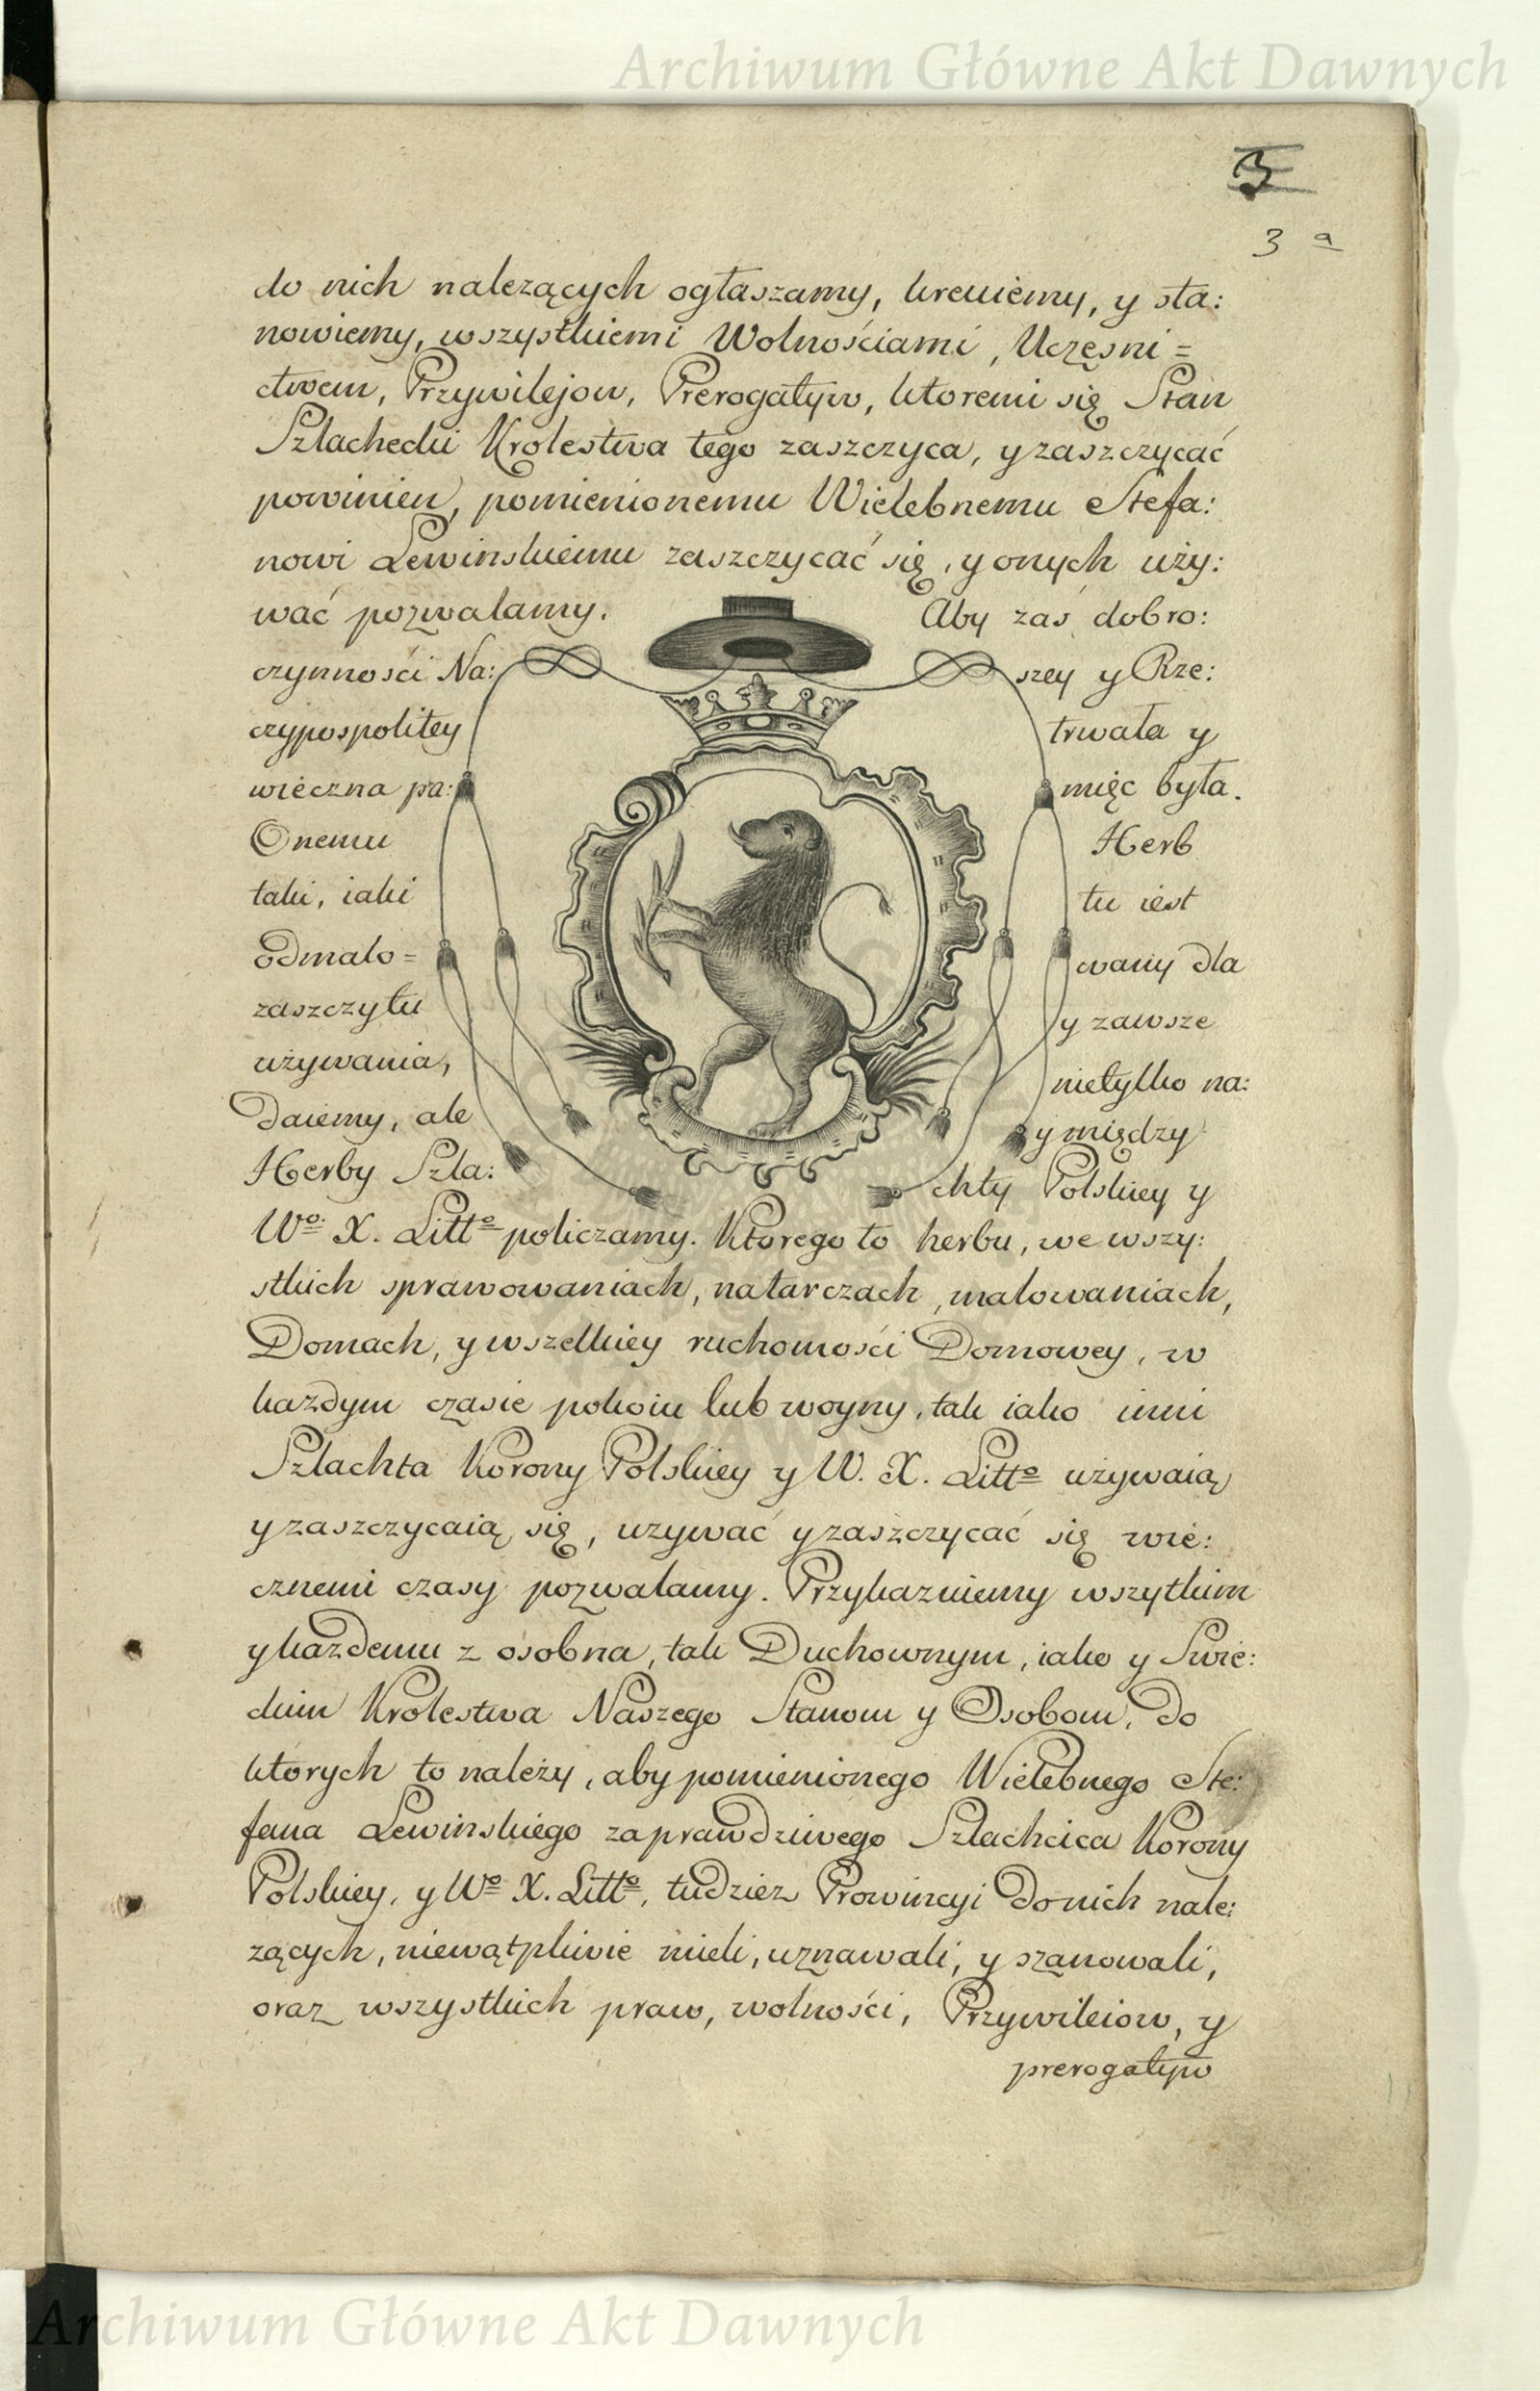 Archiwum Główne Akt Dawnych
3
3 a
do nich nalezących ogłaszamy, kreuiemy, y sta:
nowiemy, wszystkiemi Wolnościami, Uczęsni=
ctwem, Przywilejow, Prerogatyw, ktoremi się Stan
Szlachecki Krolestwa tego zaszczyca, y zaszczycać
powinien, pomienionemu Wielebnemu Stefa:
nowi Lewinskiemu zaszczycać się, y onych uży:
wać pozwalamy. Aby zaś dobro:
czynności Na: szey y Rze:
czypospolitey trwała y
wieczna pa: mięc była.
Onemu Herb
taki, iaki tu iest
odmalo= wany dla
zaszczytu y zawsze
używania, nietylko na:
Daiemy, ale y między
Herby Szla: chty Polskiey y
Wo. X. Litto policzamy. Ktorego to herbu, we wszy:
stkich sprawowaniach, na tarczach, malowaniach,
Domach, y wszelkiey ruchomości Domowey, w
każdym czasie pokoiu lub woyny, tak iako inni
Szlachta Korony Polskiey y W. X. Litto używaią
y zaszczycaią się, uzywać y zaszczycać się wie:
cznemi czasy pozwalamy. Przykazuiemy wszytkim
y każdemu z osobna, tak Duchownym, iako y Swie:
ckim Krolestwa Naszego Stanom y Osobom, do
ktorych to należy, aby pomienionego Wielebnego Ste:
fana Lewinskiego za prawdziwego Szlachcica Korony
Polskiey, y Wo X. Litto, tudziez Prowincyi do nich nale:
zących, niewątpliwie mieli, uznawali, y szanowali,
oraz wszystkich praw, wolności, Przywileiow, y
prerogatyw
Archiwum Główne Akt Dawnych